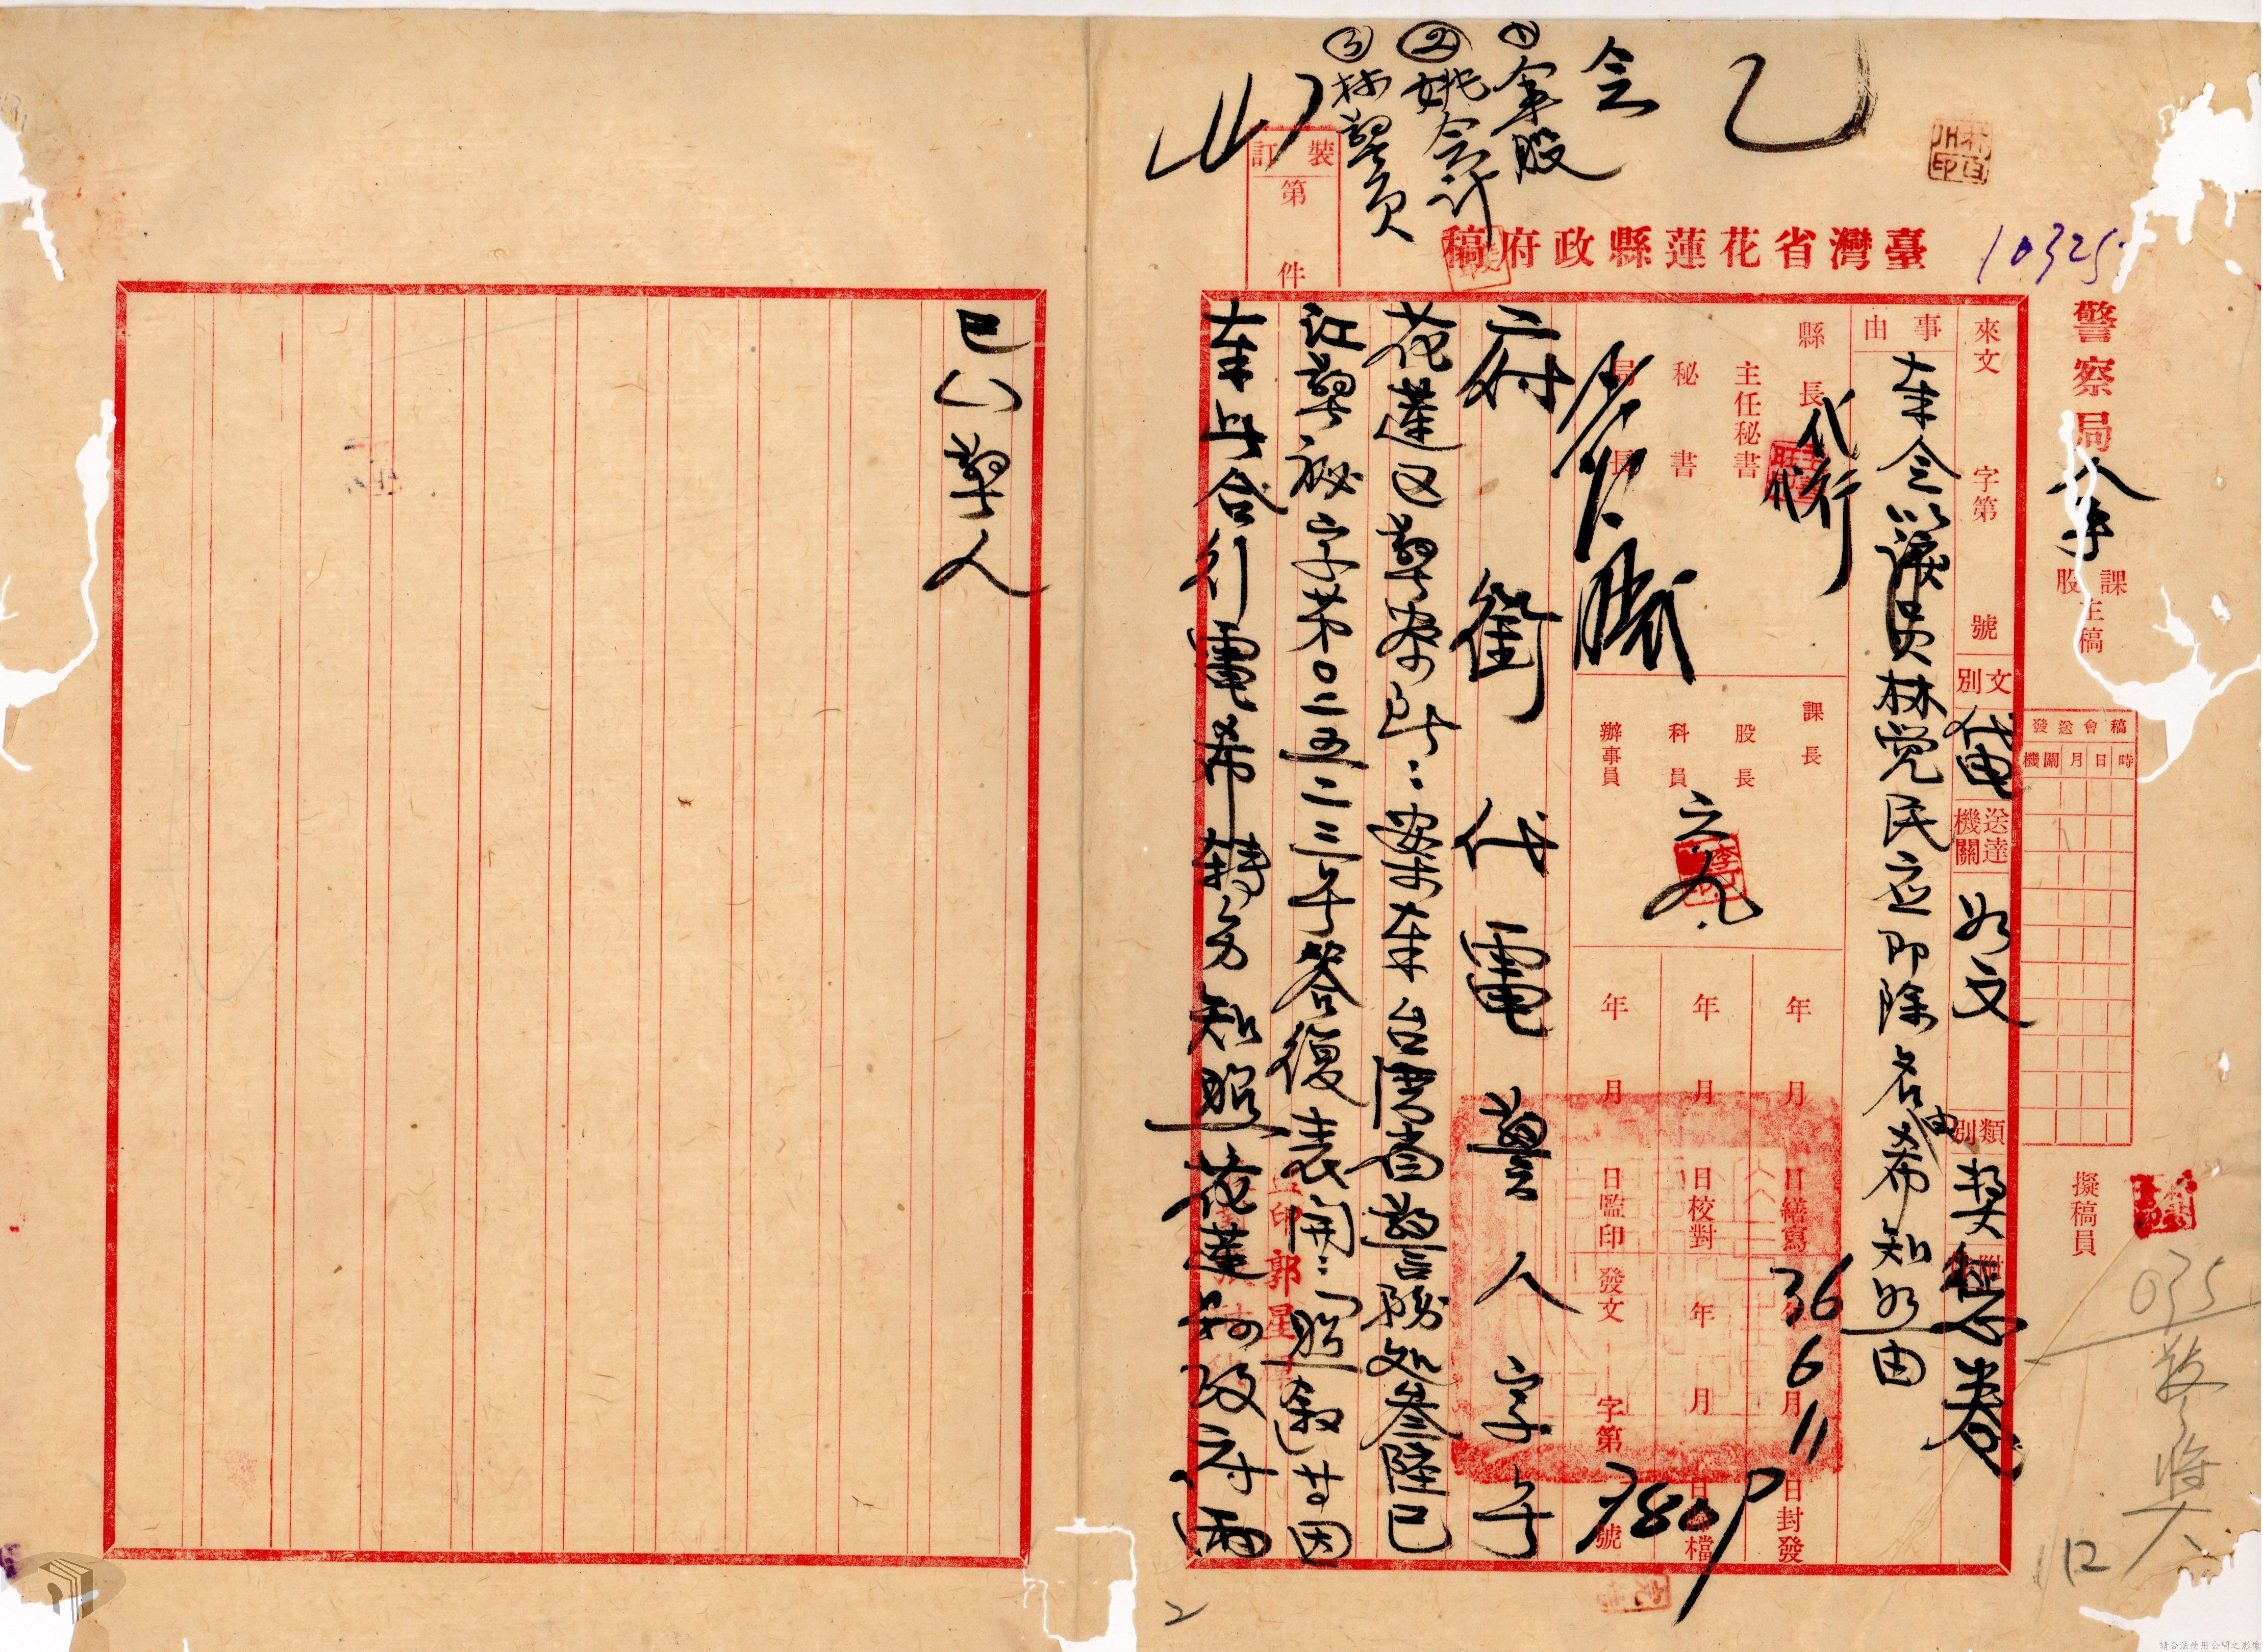 臺灣省花蓮縣政府稿
10325
乙
會
①人事股
②姚會計
③林警員
裝訂第 件
警察局 人事 課股主稿
擬稿員
稿會送發
時日月機關
來文 字第 號
文別 代電
送達機關 如文
類別 獎懲卷
事由 奉令以該員林覺民應即除名由希知照由
縣長 代行
主任秘書
秘書
局長
課長
股長
科員
辦事員
年 月 日繕寫
年 月 日校對
年 月 日監印
36年6月11日封發
年 月 日歸檔
發文 字第 號
7809
府銜代電 警人字 號
花蓮區警察所:案奉台灣省警務處叁陸巳
江警祕字第0二五二三號答復表開:「照敘」等因
奉此合行電希轉飭知照花蓮縣政府
巳 警人
監印郭星
035
12
2
請合法使用公開之影像